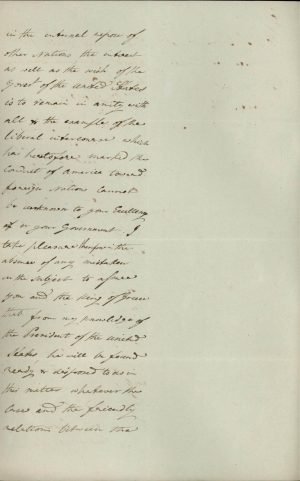 in the internal repose of
other Nations the interest
as well as the wish of the
Govt of the United States
is to remain in amity with
all & the example of the
liberal intercourse which
has heretofore marked the
conduct of America toward
foreign Nations cannot
be unknown to your Excellency
or your Government. I
take pleasure in the
absence of any
on the subject to assure
you and the King of Greece
that from my knowledge of
the President of the United
States, he will be found
ready & disposed to
this matter whatever the
case and the friendly
relations between the